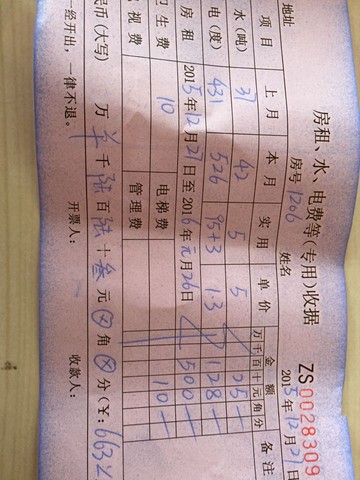 房租、水、电费等(专用)收据
ZS0028309
地址 房号 1206 姓名 2015年12月21日
项目 上月 本月 实用 单价 金额 备注
万 千 百 十 元 角 分
水(吨) 37 42 5 5 25 —
电(度) 431 526 95+3 1.3 128 —
房租 2015年12月27日至2016年元月26日 500 —
卫生费 10 电梯费 10 —
视费 管理费
民币(大写) 万 千 陆百陆十叁元 ⊗角 ⊗分(¥: 663
一经开出,一律不退。 开票人: 收款人: